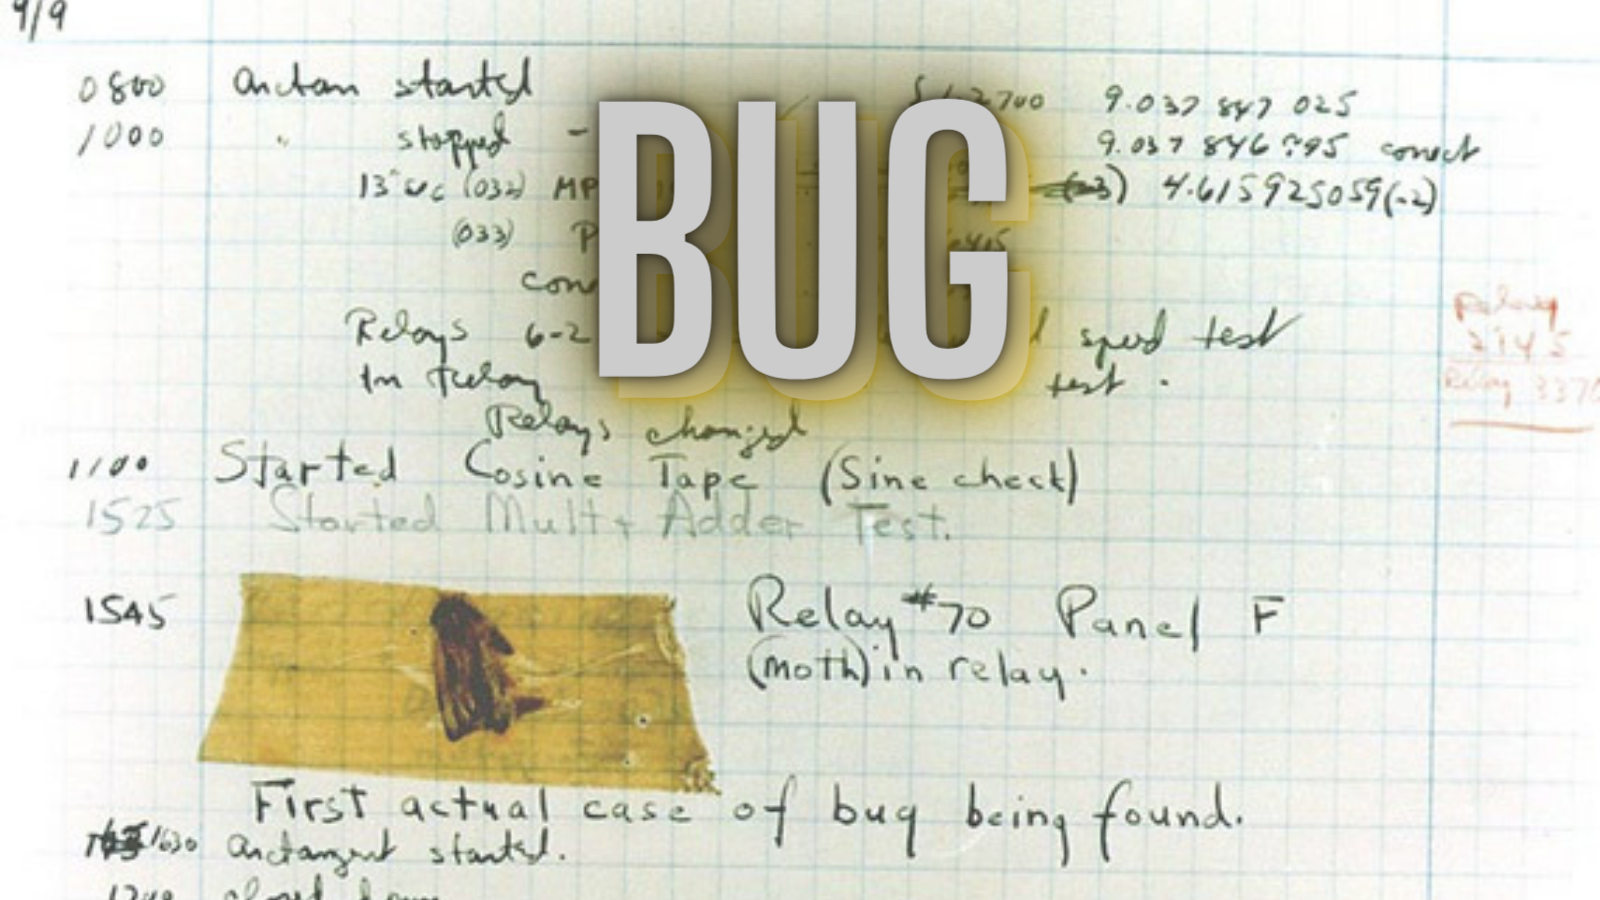 9/9
0800 Arctan started 1.2700 9.037 847 025
1000 " stopped - 9.037 846 795 correct
13"uc (032) MP (-3) 4.615925059(-2)
(033) P
con
Relays 6-2 speed test
In relay test.
Relay
2145
Relay 3370
Relays changed
BUG
1100 Started Cosine Tape (Sine check)
1525 Started Mult + Adder Test.
1545 Relay #70 Panel F
(moth) in relay.
First actual case of bug being found.
1630 Arctangent started.
1700 closed down.